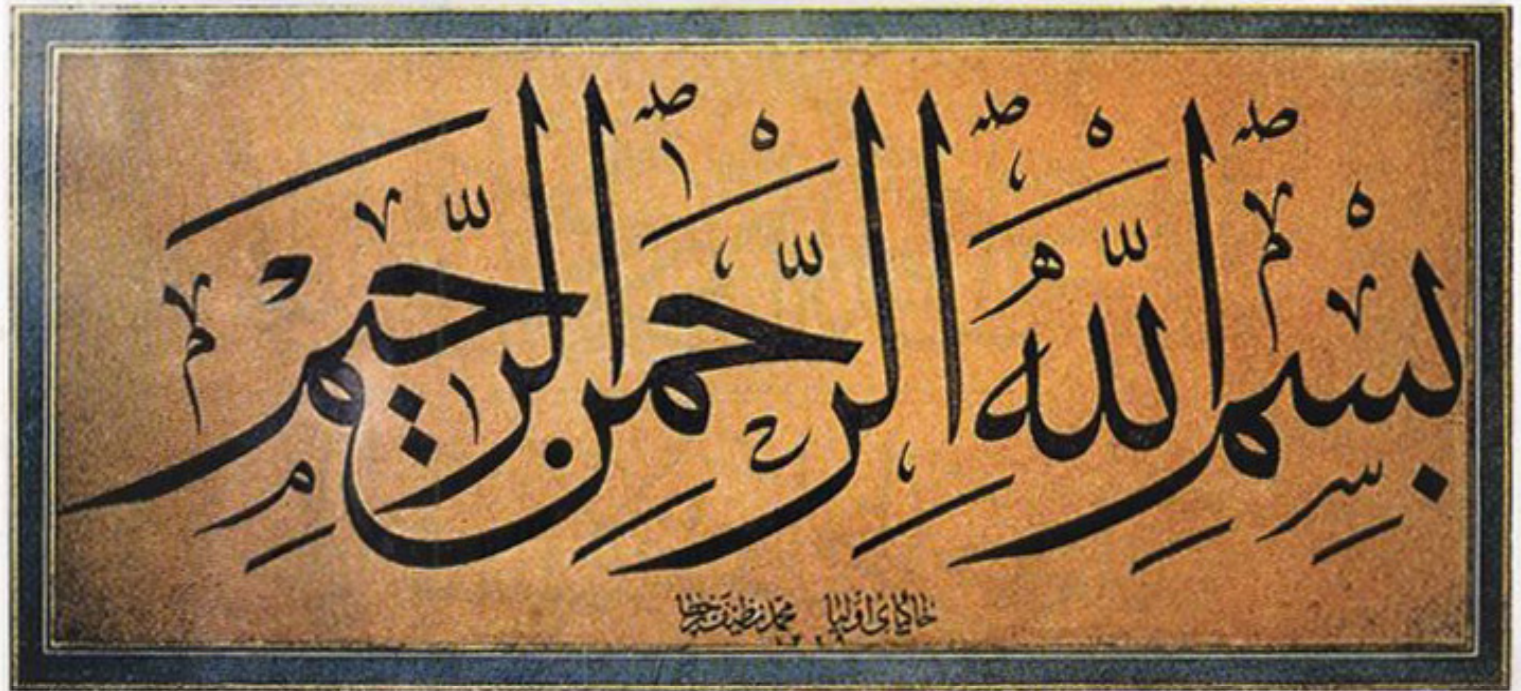 بِسْمِ اللّٰهِ الرَّحْمٰنِ الرَّحِيمِ
خاکپای اولیا محمد نظیف